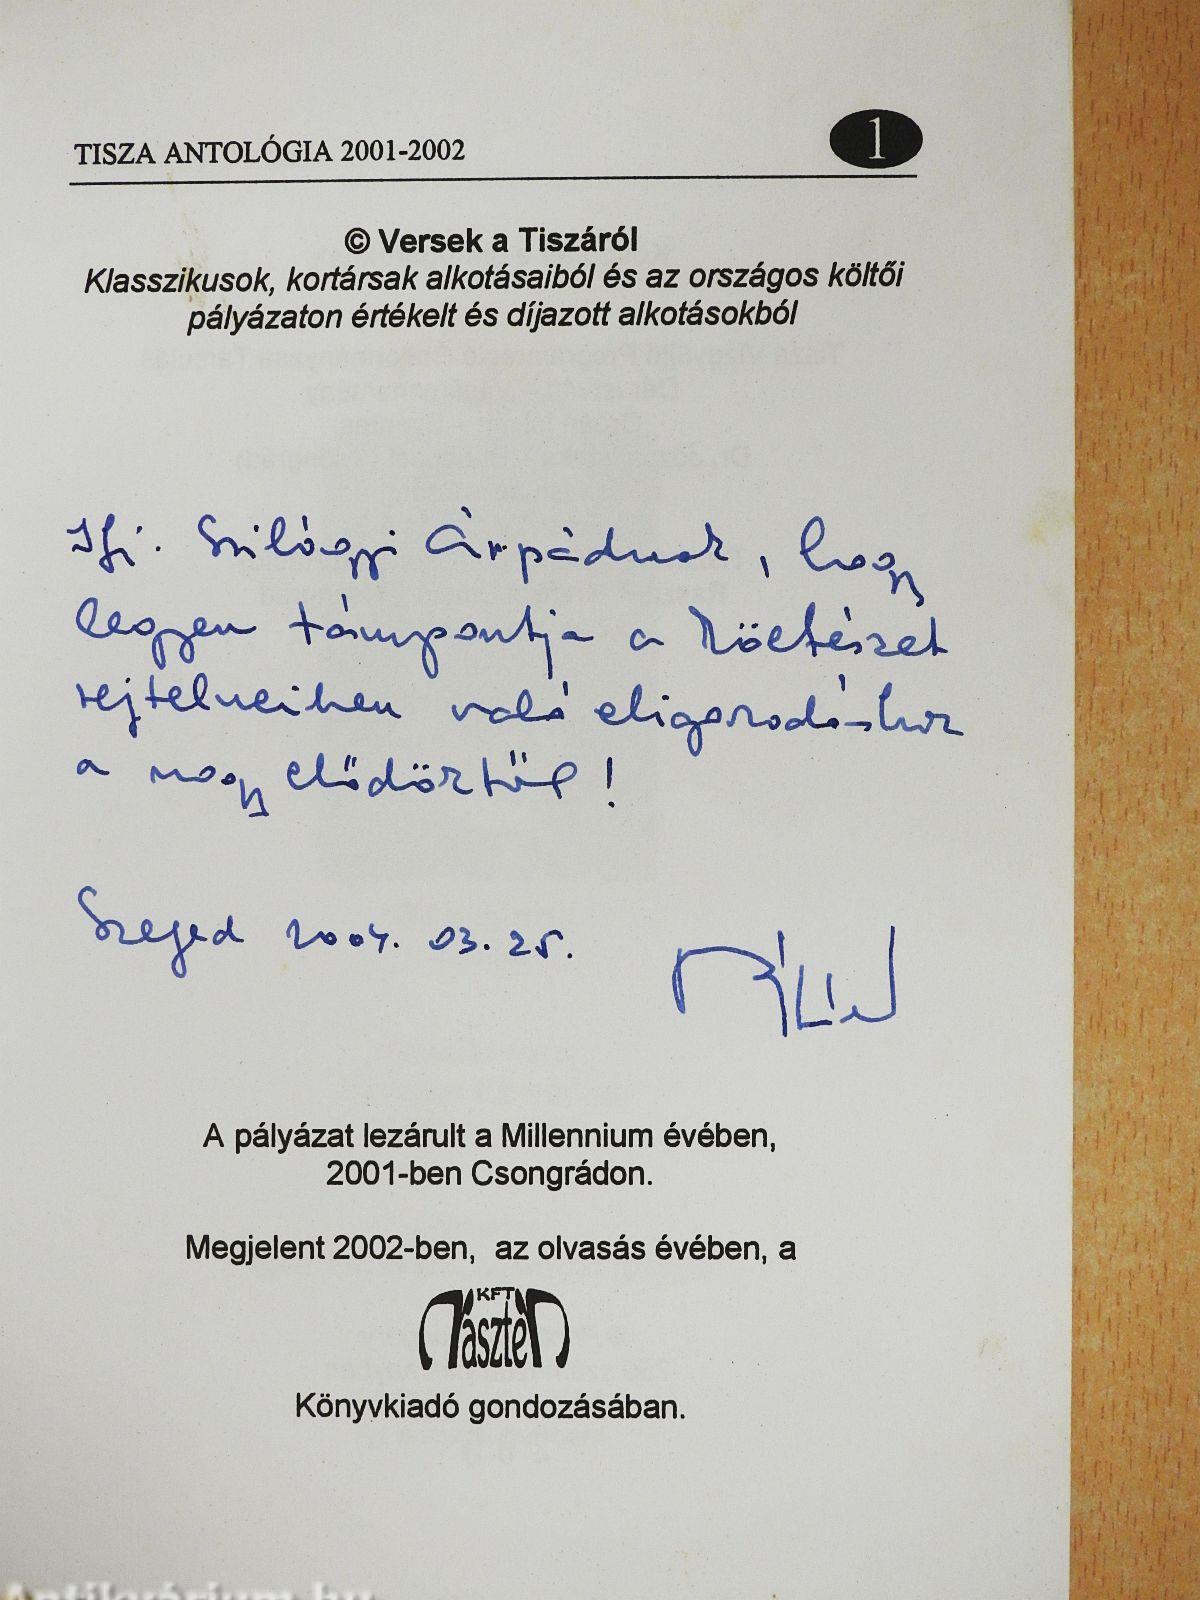 TISZA ANTOLÓGIA 2001-2002
1
© Versek a Tiszáról
Klasszikusok, kortársak alkotásaiból és az országos költői
pályázaton értékelt és díjazott alkotásokból
Ifj. Szilágyi Árpádnak, hogy
legyen támpontja a költészet
rejtelmeiben való eligazodáshoz
a nagy elődöktől!
Szeged 2004. 03. 25.
A pályázat lezárult a Millennium évében,
2001-ben Csongrádon.
Megjelent 2002-ben, az olvasás évében, a
KFT
Rászter
Könyvkiadó gondozásában.
Antikvárium.hu